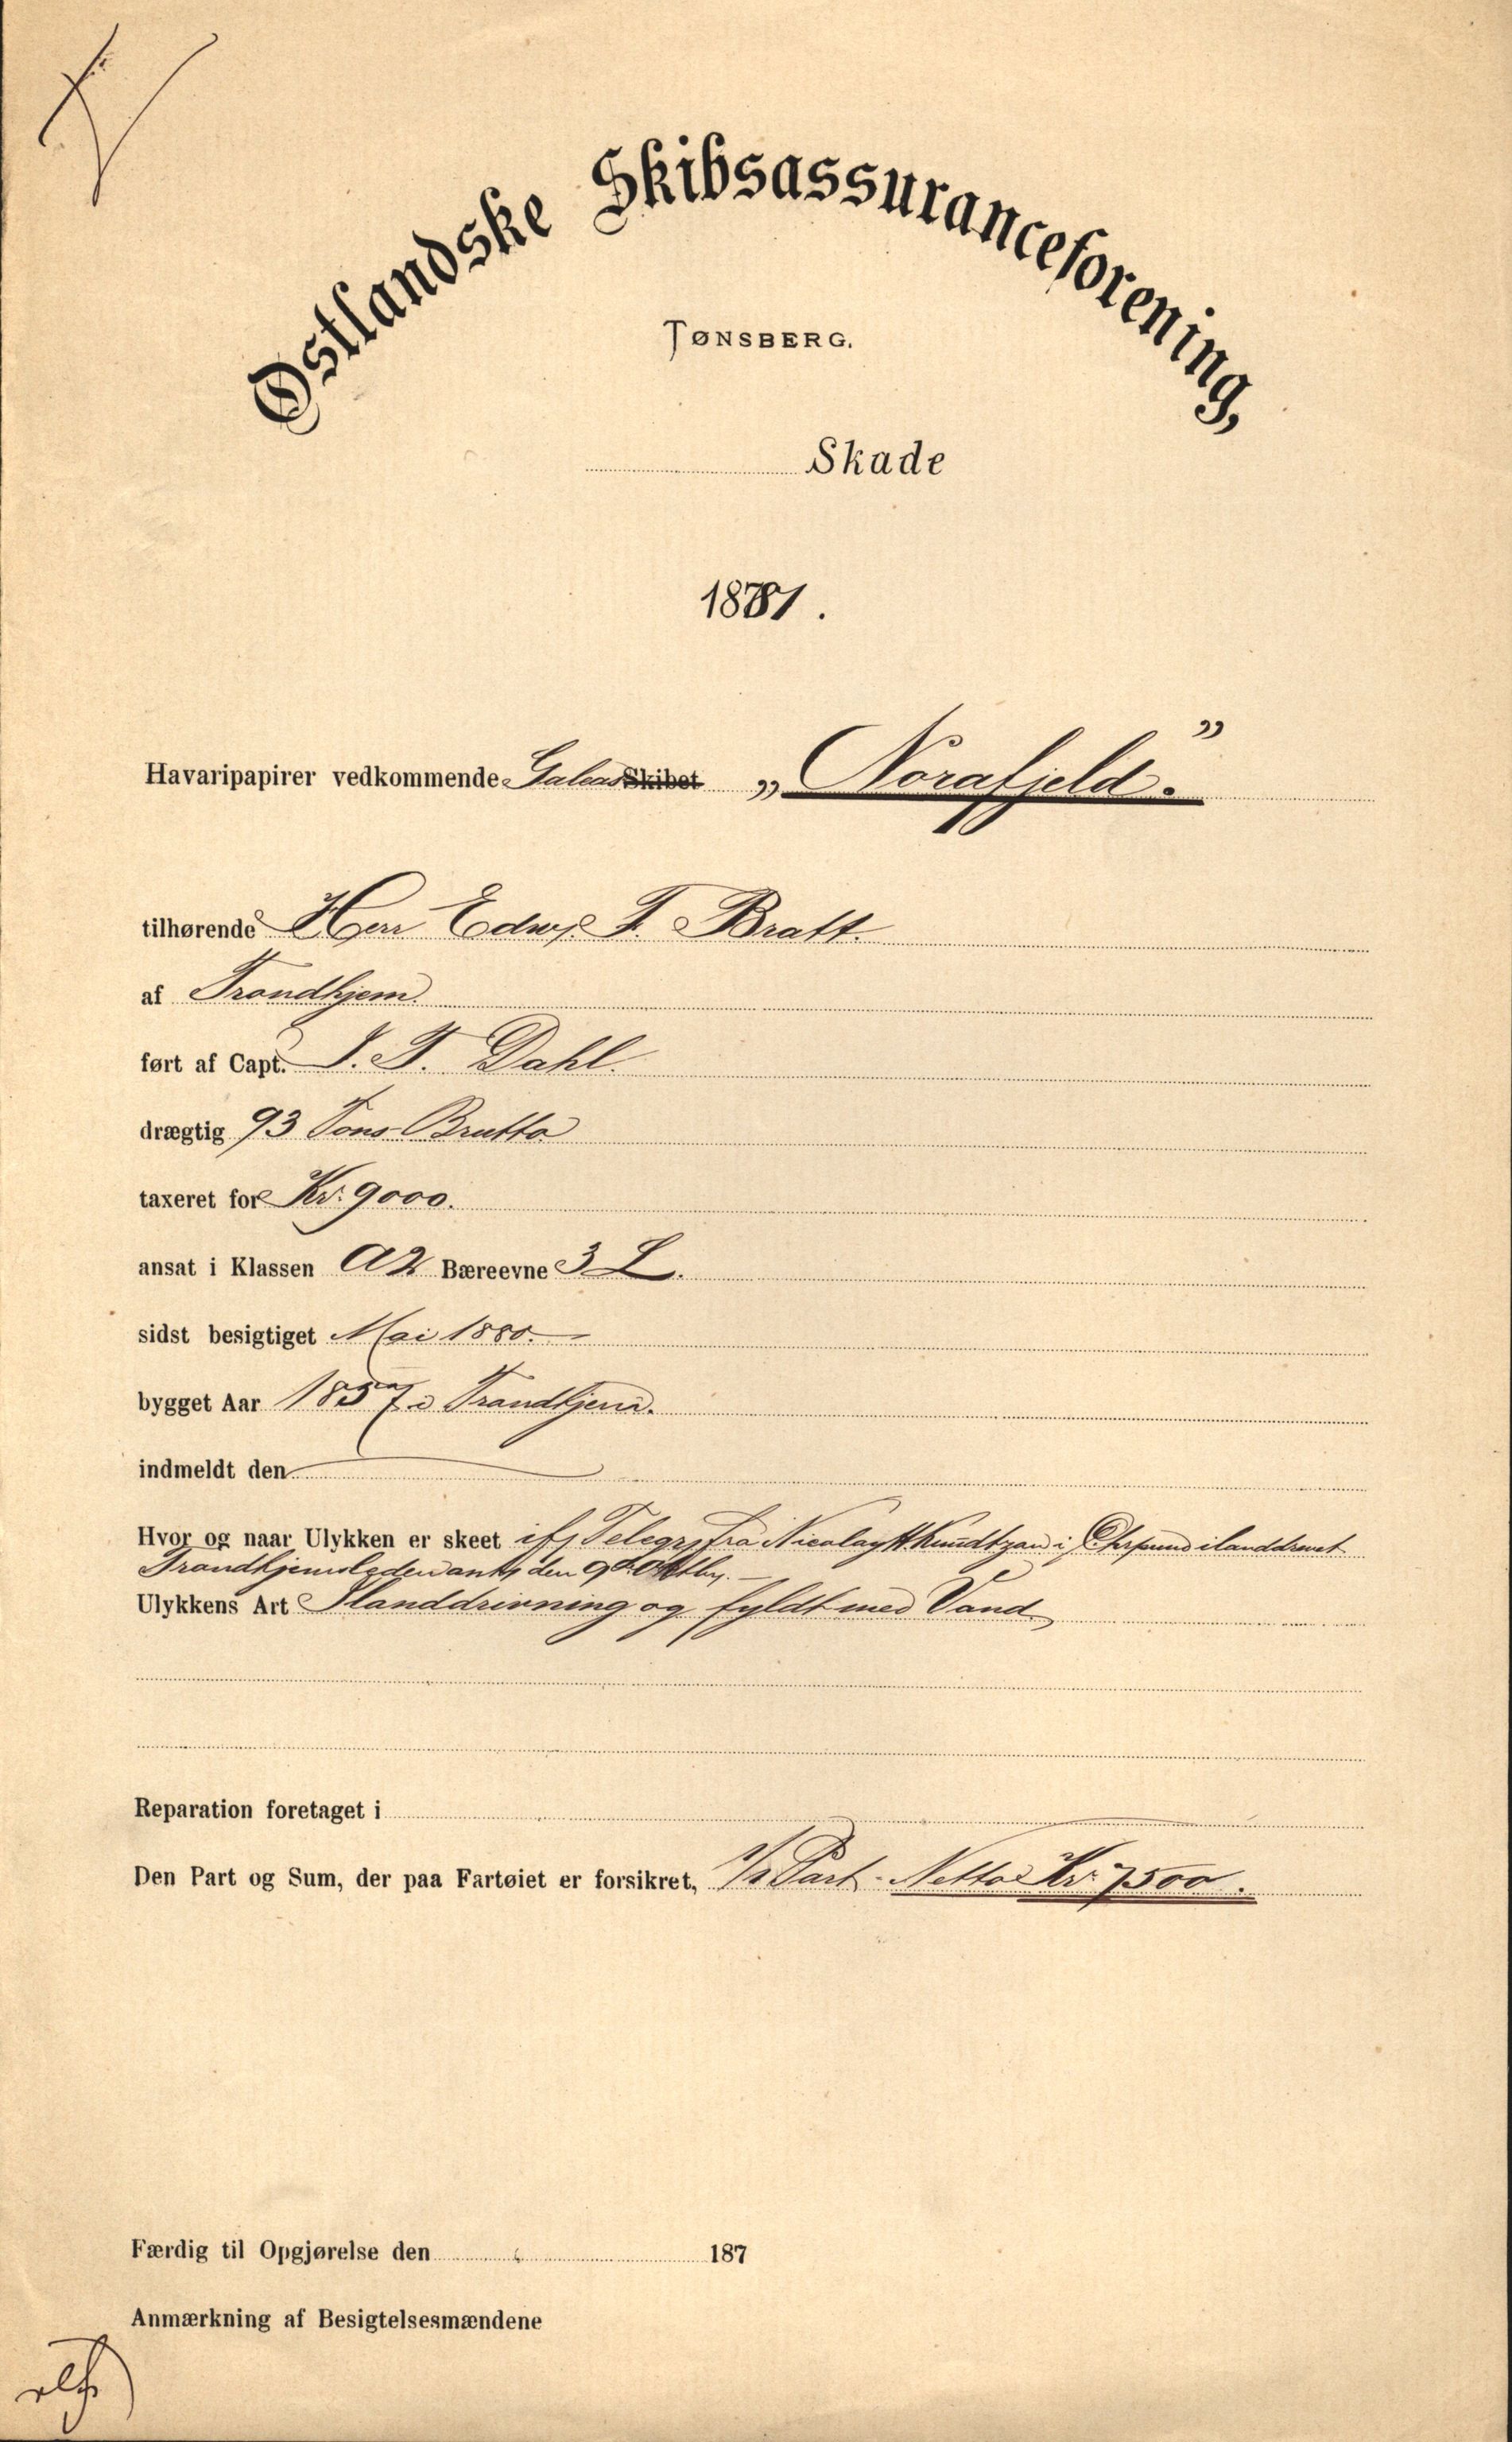 Østlandske Skibsassuranceforening,
TØNSBERG.
Skade
1881.
Havaripapirer vedkommende Galeas Skibet „Norafjeld."
tilhørende Herr Edw. F. Bratt.
af Trondhjem.
ført af Capt. J. F. Dahl.
drægtig 93 Tons Brutto
taxeret for Kr. 9000.
ansat i Klassen A2 Bæreevne 3 L.
sidst besigtiget Mai 1880.
bygget Aar 1857 i Trondhjem.
indmeldt den
Hvor og naar Ulykken er skeet ifg Telegr. fra Nicolay H. Knudtzon i Chrsund ilanddrevet
Trondhjemsleden den 9de Oktbr.
Ulykkens Art Ilanddrivning og fyldt med Vand
Reparation foretaget i
Den Part og Sum, der paa Fartøiet er forsikret, 1/1 Part - Netto Kr. 7500.
Færdig til Opgjørelse den 187
Anmærkning af Besigtelsesmændene